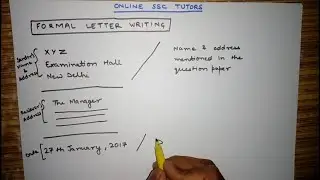 ONLINE SSC TUTORS
FORMAL LETTER WRITING
Sender's name & address
X Y Z
Examination Hall
New Delhi
Name & address
mentioned in the
question paper
Receiver's address
The Manager
Date
27th January, 2017